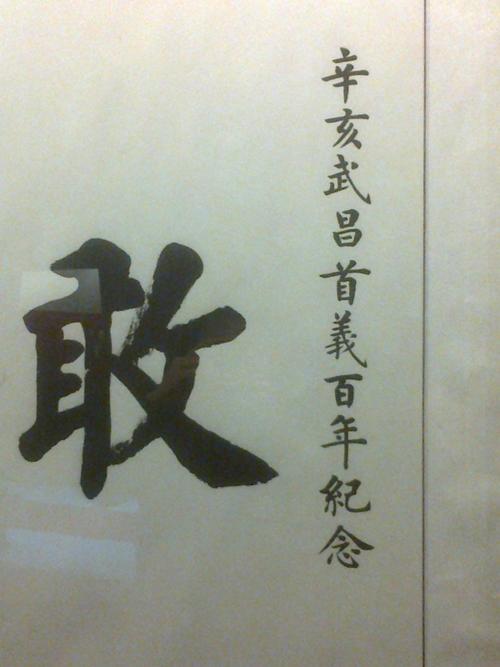 辛亥武昌首義百年紀念
敢